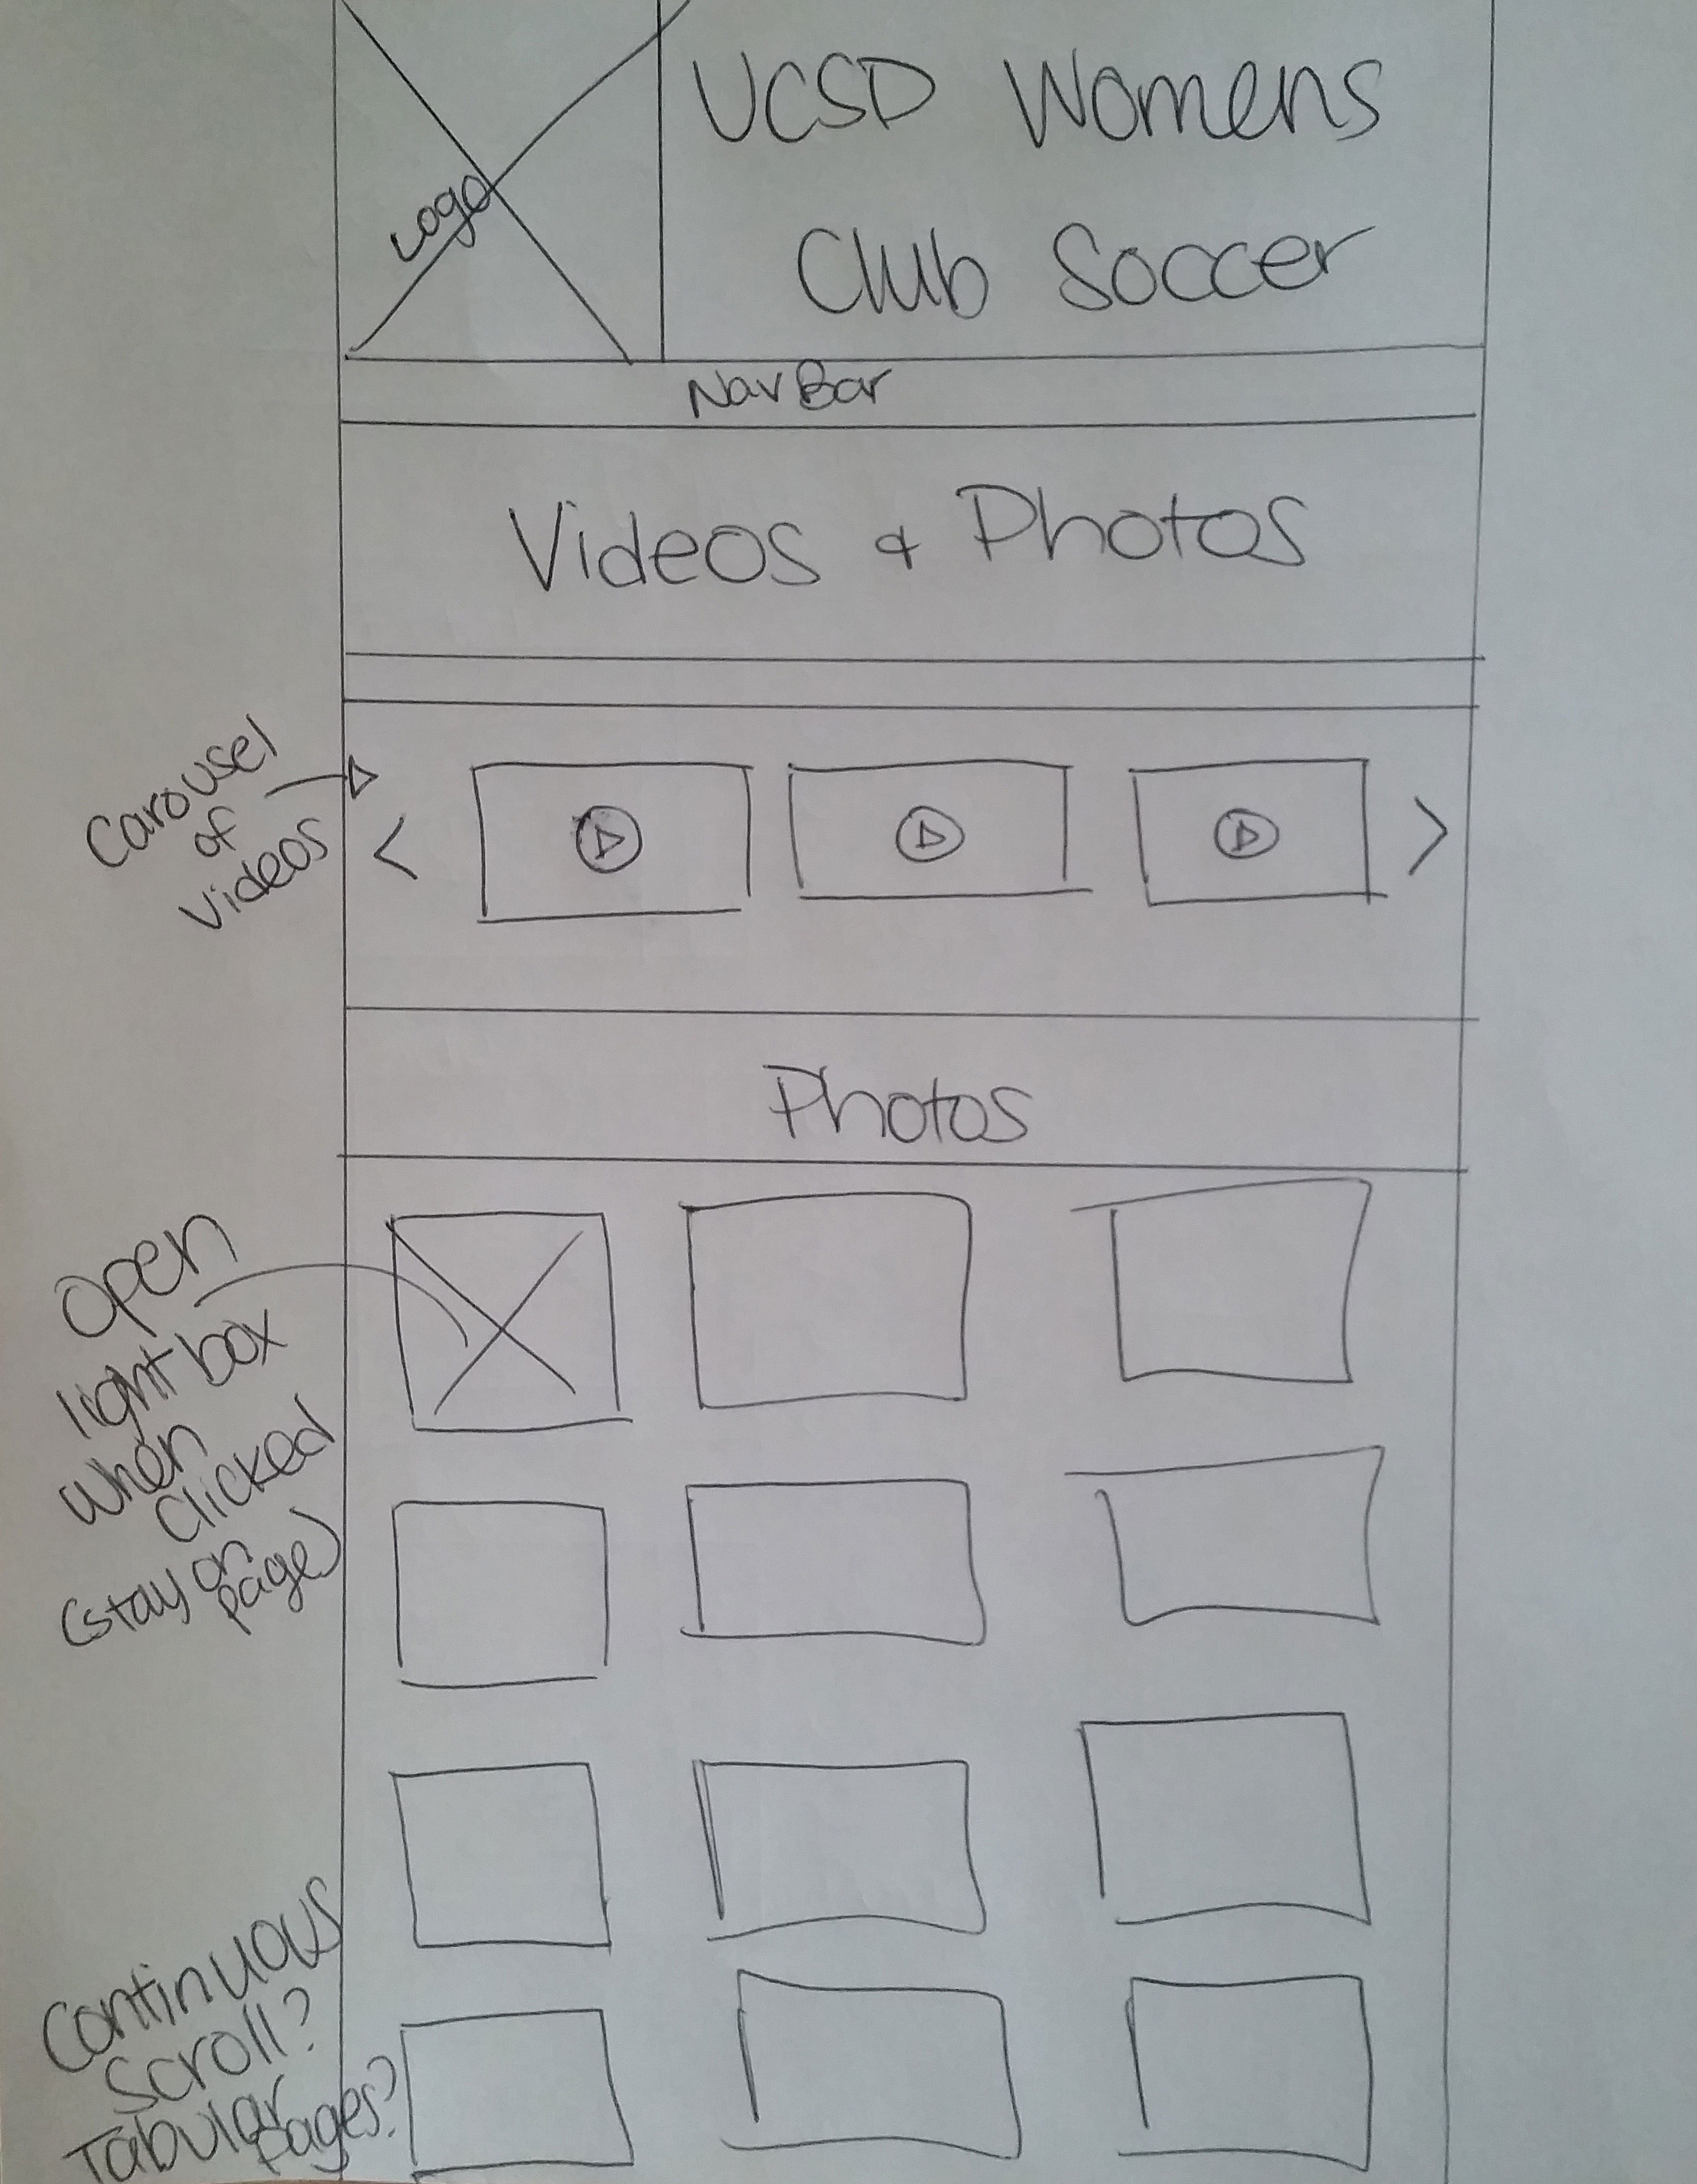 UCSD Womens
Club Soccer
Logo
NavBar
Videos & Photos
Carousel
of
videos
Photos
Open
light box
when
clicked
(stay on
page)
Continuous
Scroll?
Tabular
pages?